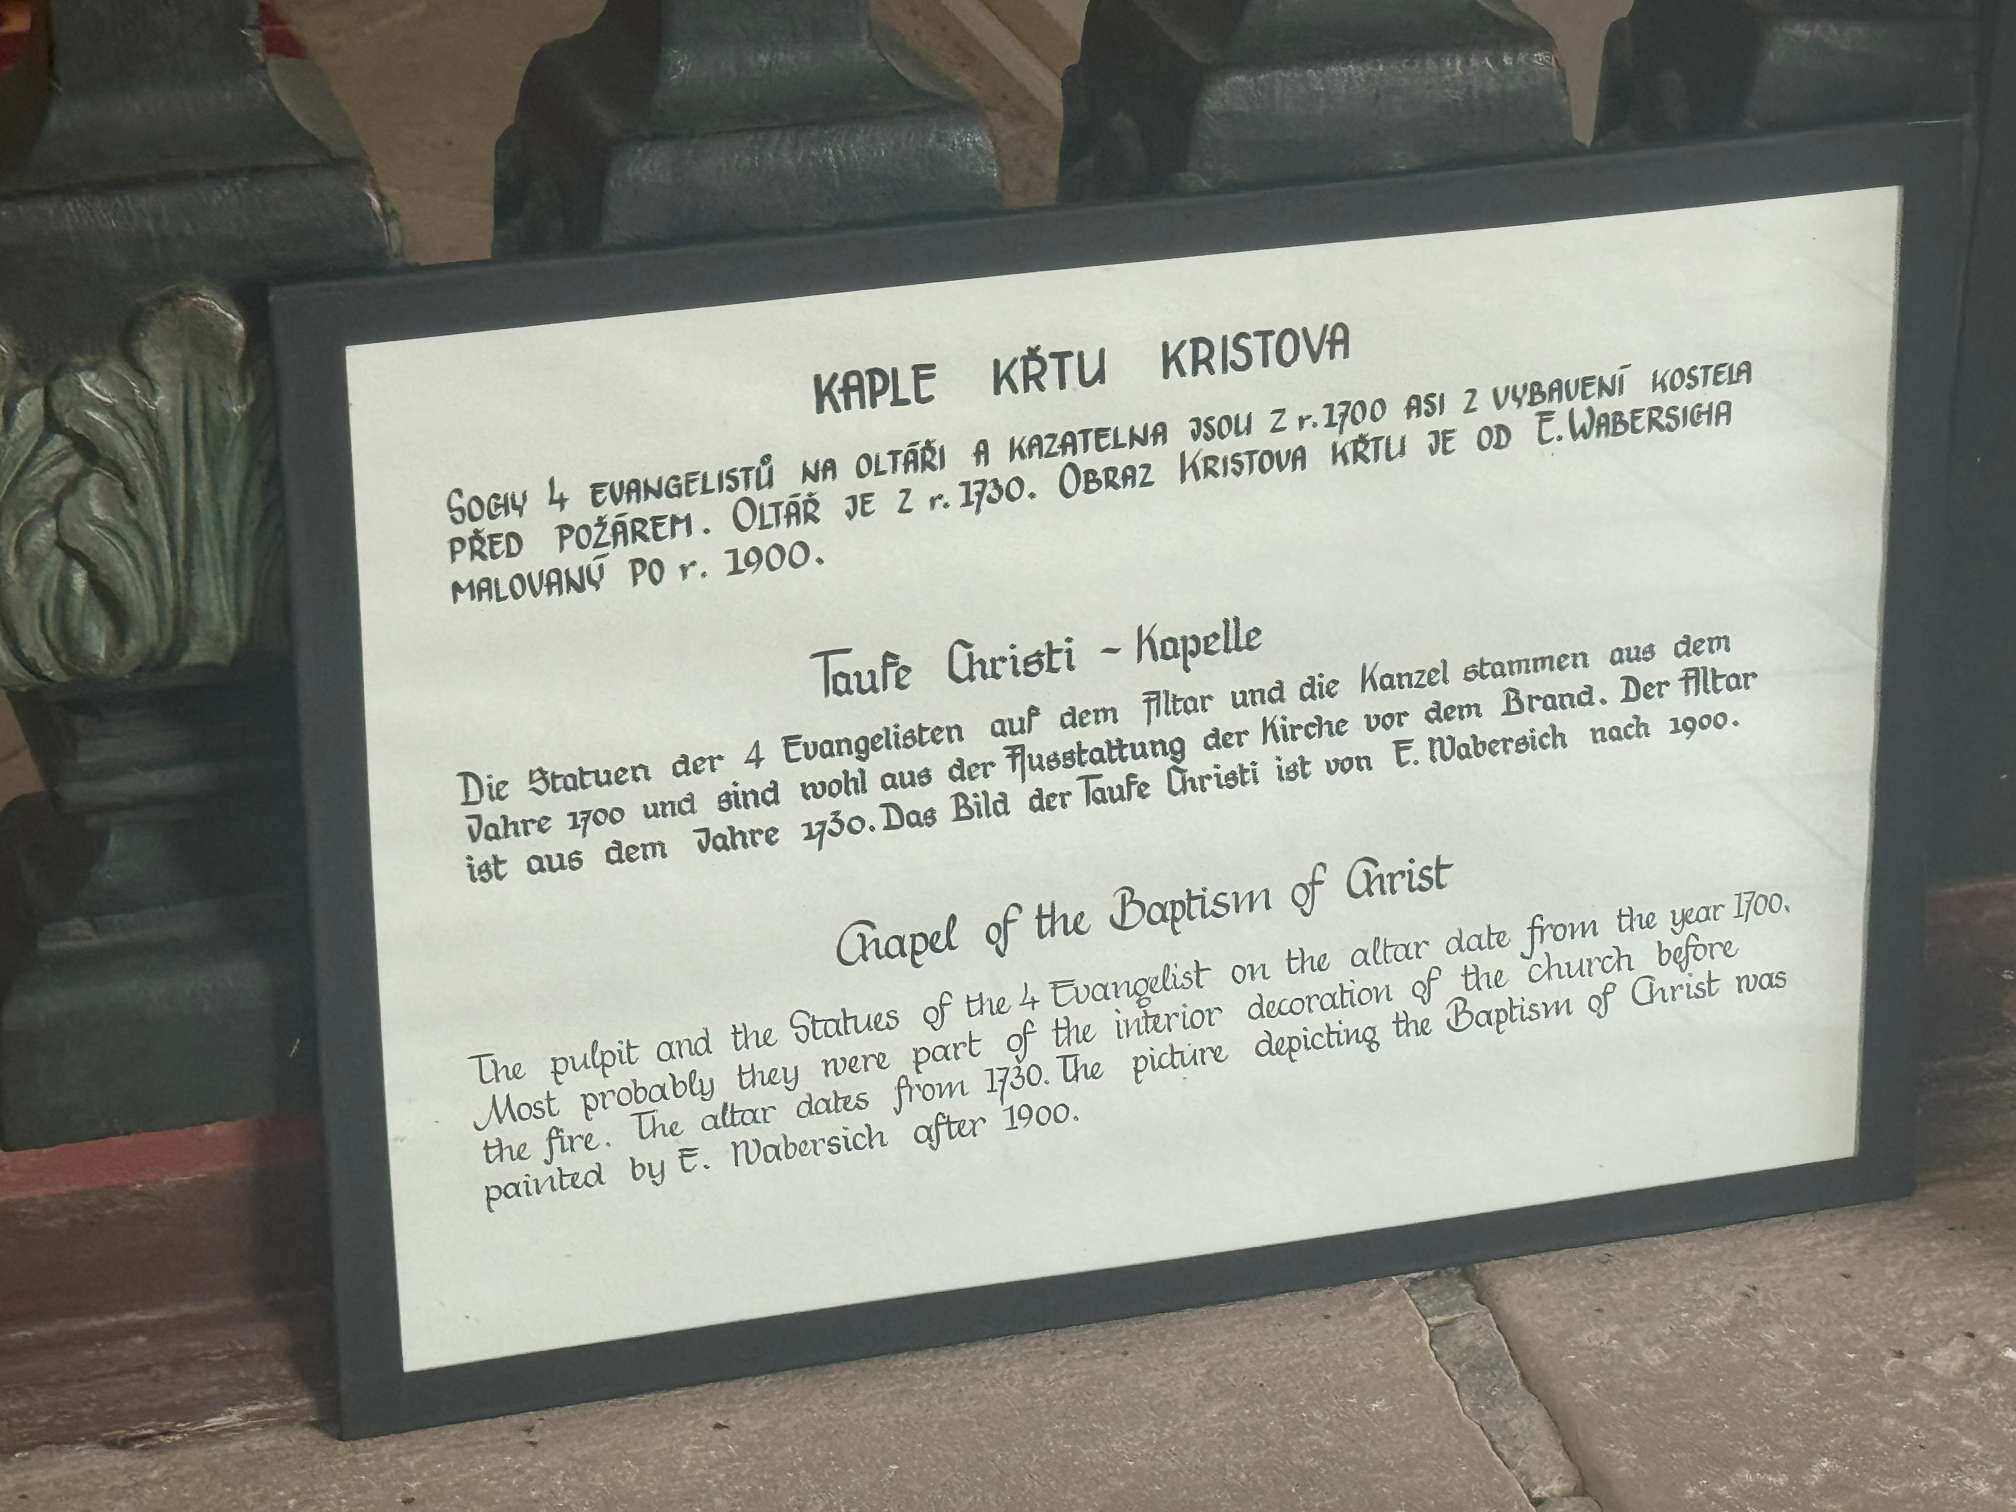 KAPLE KŘTU KRISTOVA
SOCHY 4 EVANGELISTŮ NA OLTÁŘI A KAZATELNA JSOU Z r. 1700 ASI Z VYBAVENÍ KOSTELA
PŘED POŽÁREM. OLTÁŘ JE Z r. 1730. OBRAZ KRISTOVA KŘTU JE OD E. WABERSICHA
MALOVANÝ PO r. 1900.
Taufe Christi - Kapelle
Die Statuen der 4 Evangelisten auf dem Altar und die Kanzel stammen aus dem
Jahre 1700 und sind wohl aus der Ausstattung der Kirche vor dem Brand. Der Altar
ist aus dem Jahre 1730. Das Bild der Taufe Christi ist von E. Wabersich nach 1900.
Chapel of the Baptism of Christ
The pulpit and the Statues of the 4 Evangelist on the altar date from the year 1700.
Most probably they were part of the interior decoration of the church before
the fire. The altar dates from 1730. The picture depicting the Baptism of Christ was
painted by E. Wabersich after 1900.